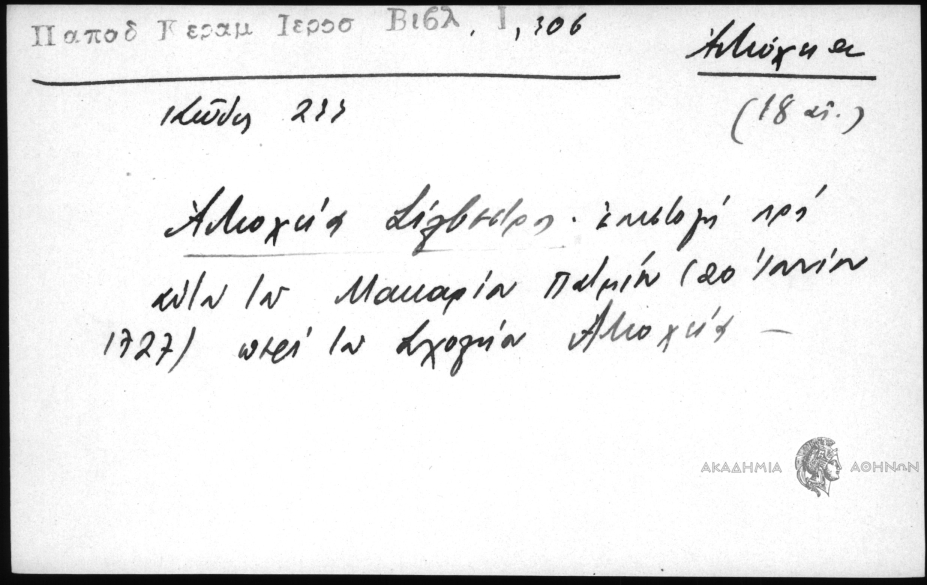 Παποδ Κεραμ Ιεροσ Βιβλ. Ι, 306
Ἀντιόχεια
Κῶδιξ 233
(18 αἰ.)
Ἀντιοχείας Σίλβεστρος. Ἐπιστολή πρὸς
αὐτὸν τοῦ Μακαρίου Πατμίου (20 Ἰουνίου
1727) περὶ τοῦ σχολείου Ἀντιοχείας —
ΑΚΑΔΗΜΙΑ ΑΘΗΝΩΝ